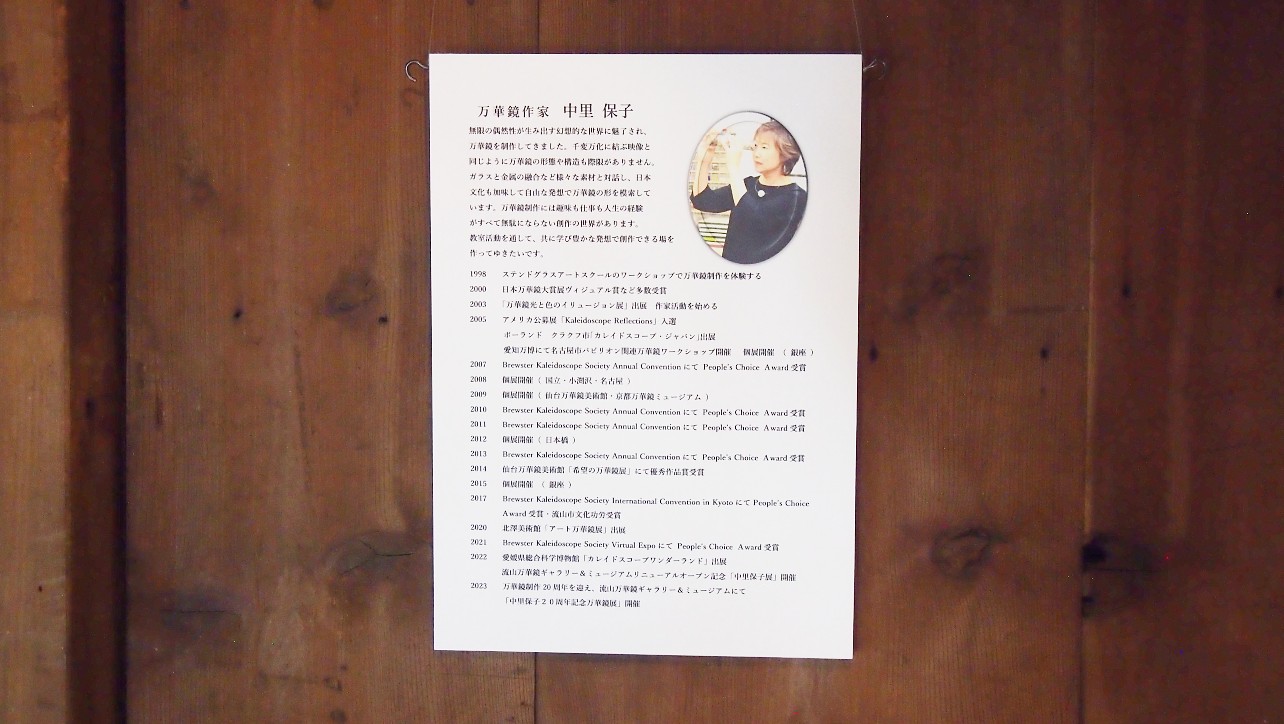 万華鏡作家 中里 保子
無限の偶然性が生み出す幻想的な世界に魅了され、
万華鏡を制作してきました。千変万化に結ぶ映像と
同じように万華鏡の形態や構造も際限がありません。
ガラスと金属の融合など様々な素材と対話し、日本
文化も加味して自由な発想で万華鏡の形を模索して
います。万華鏡制作には趣味も仕事も人生の経験
がすべて無駄にならない創作の世界があります。
教室活動を通して、共に学び豊かな発想で創作できる場を
作ってゆきたいです。
1998 ステンドグラスアートスクールのワークショップで万華鏡制作を体験する
2000 日本万華鏡大賞展ヴィジュアル賞など多数受賞
2003 「万華鏡光と色のイリュージョン展」出展 作家活動を始める
2005 アメリカ公募展「Kaleidoscope Reflections」入選
ポーランド クラクフ市「カレイドスコープ・ジャパン」出展
愛知万博にて名古屋市パビリオン関連万華鏡ワークショップ開催 個展開催 ( 銀座 )
2007 Brewster Kaleidoscope Society Annual Convention にて People's Choice Award 受賞
2008 個展開催 ( 国立・小淵沢・名古屋 )
2009 個展開催 ( 仙台万華鏡美術館・京都万華鏡ミュージアム )
2010 Brewster Kaleidoscope Society Annual Convention にて People's Choice Award 受賞
2011 Brewster Kaleidoscope Society Annual Convention にて People's Choice Award 受賞
2012 個展開催 ( 日本橋 )
2013 Brewster Kaleidoscope Society Annual Convention にて People's Choice Award 受賞
2014 仙台万華鏡美術館「希望の万華鏡展」にて優秀作品賞受賞
2015 個展開催 ( 銀座 )
2017 Brewster Kaleidoscope Society International Convention in Kyoto にて People's Choice
Award 受賞・流山市文化功労受賞
2020 北澤美術館「アート万華鏡展」出展
2021 Brewster Kaleidoscope Society Virtual Expo にて People's Choice Award 受賞
2022 愛媛県総合科学博物館「カレイドスコープワンダーランド」出展
流山万華鏡ギャラリー＆ミュージアムリニューアルオープン記念「中里保子展」開催
2023 万華鏡制作 20 周年を迎え、流山万華鏡ギャラリー＆ミュージアムにて
「中里保子２０周年記念万華鏡展」開催